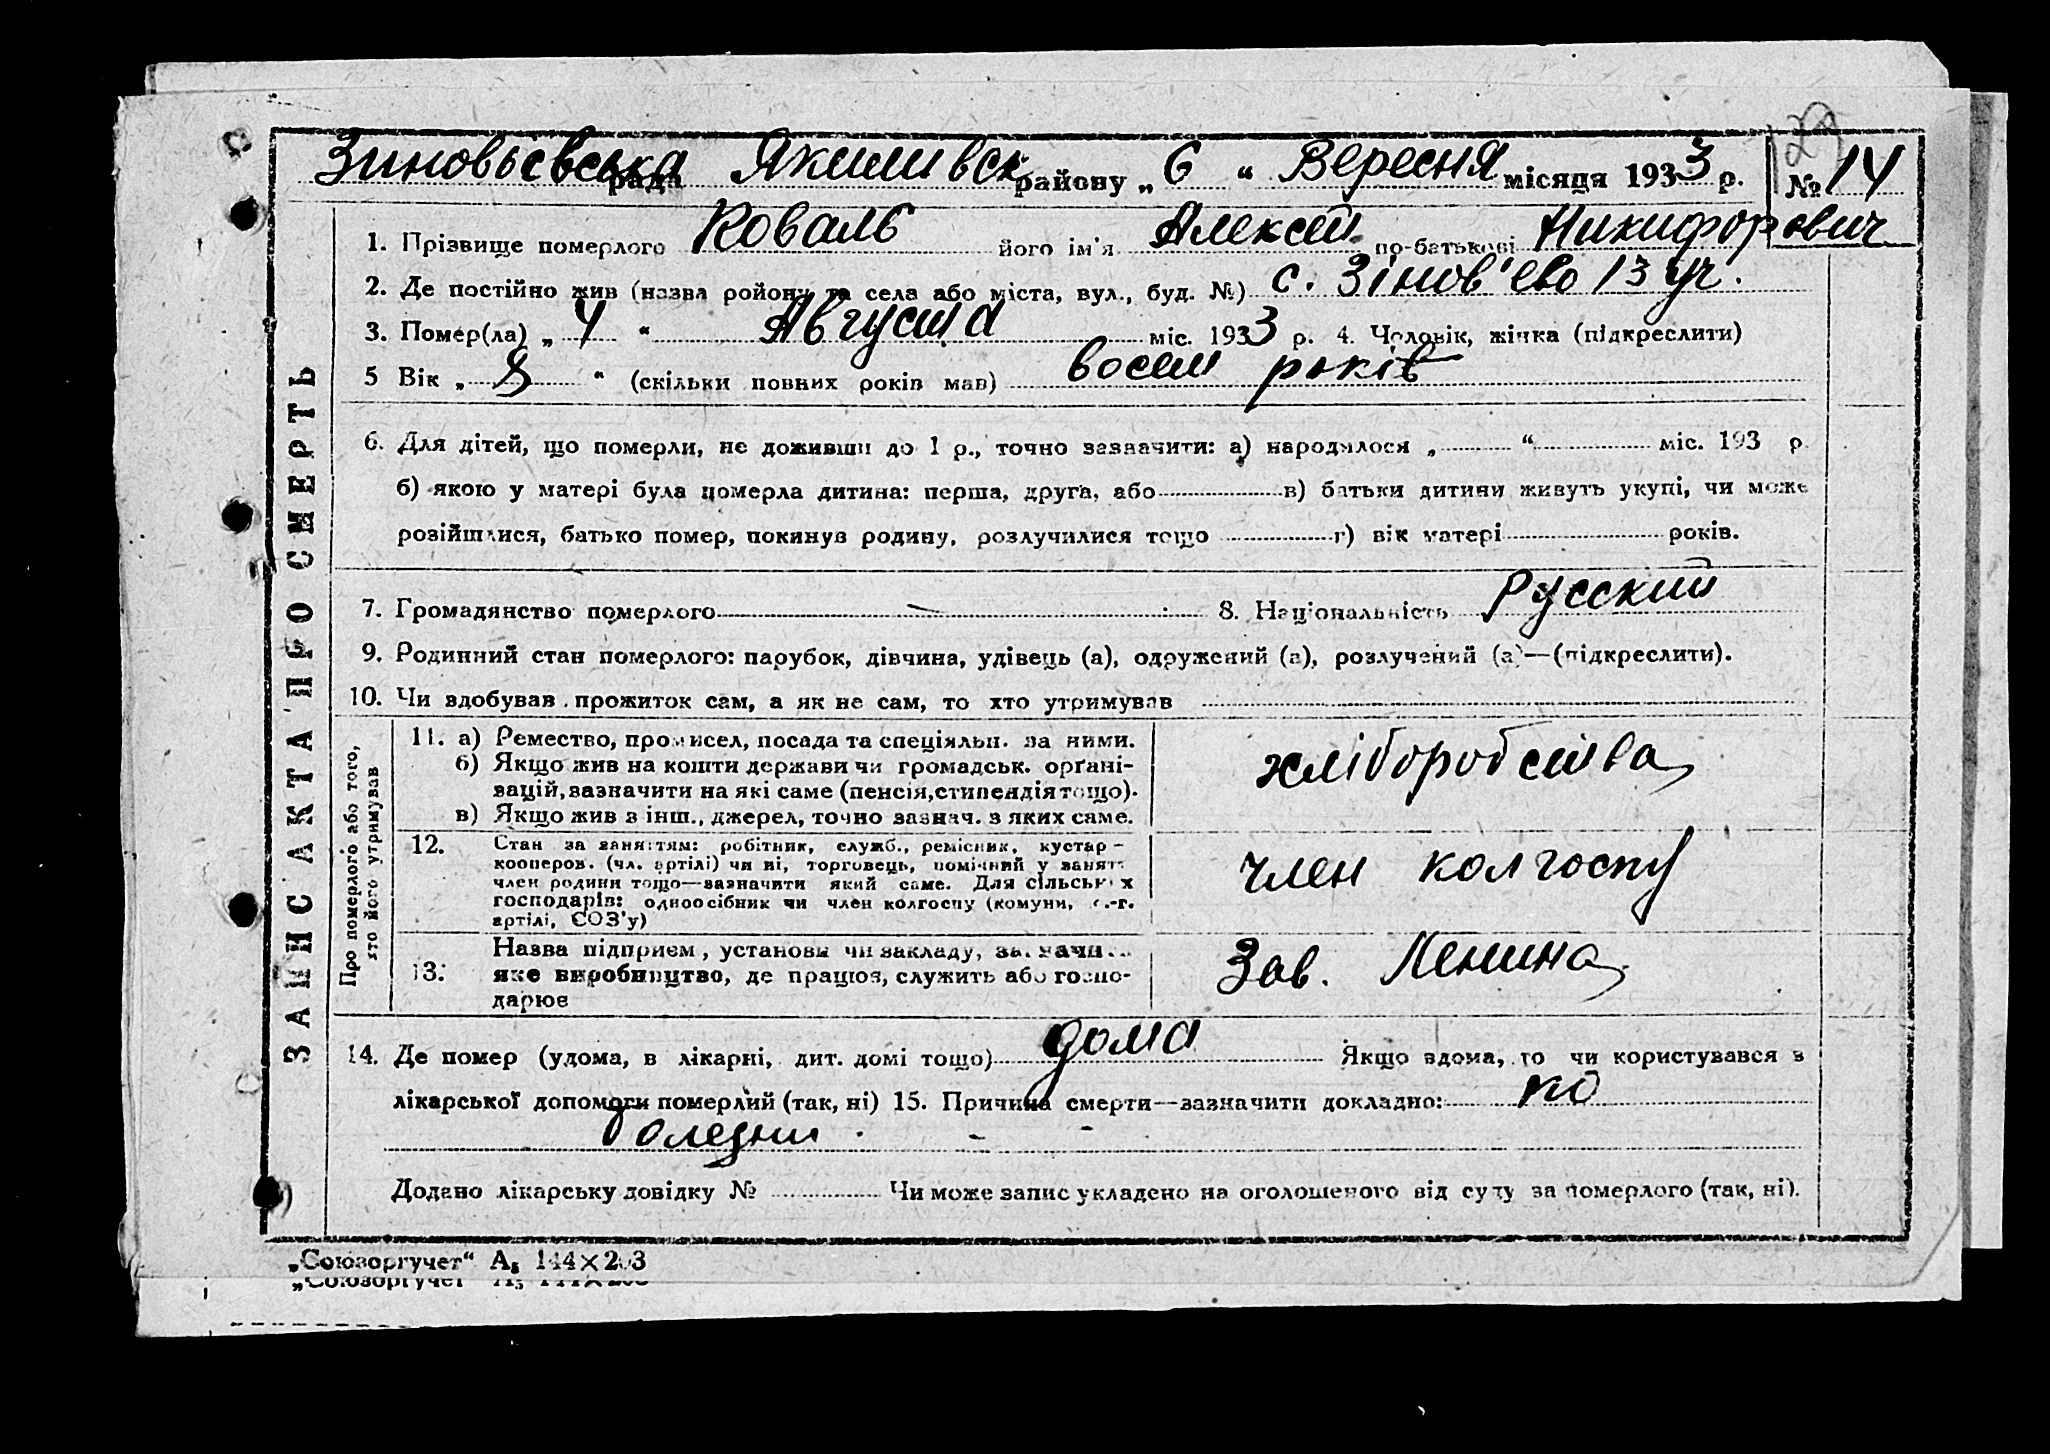 Зиновьевська рада Якимівск району „ 6 “ Вересня місяця 1933 р. № 14
1. Прізвище померлого Коваль його ім'я Алексей по-батькові Никифорович
2. Де постійно жив (назва ройону та села або міста, вул., буд. №) с. Зінов'ево 13 уч.
3. Помер(ла) „ 4 “ Августа міс. 1933 р. 4. Чоловік, жінка (підкреслити)
5 Вік „ 8 “ (скільки повних років мав) восем років
6. Для дітей, що померли, не доживши до 1 р., точно зазначити: а) народилося „ “ міс. 193 р.
б) якою у матері була померла дитина: перша, друга, або в) батьки дитини живуть укупі, чи може
розійшлися, батько помер, покинув родину, розлучилися тощо г) вік матері років.
7. Громадянство померлого — 8. Національність Русский
9. Родинний стан померлого: парубок, дівчина, удівець (а), одружений (а), розлучений (а)—(підкреслити).
10. Чи здобував прожиток сам, а як не сам, то хто утримував
ЗАПИС АКТА ПРО СМЕРТЬ
Про померлого або того,
хто його утримував
11. а) Ремество, промисел, посада та спеціяльн. за ними.
б) Якщо жив на кошти держави чи громадськ. орґані-
зацій, зазначити на які саме (пенсія, стипендія тощо).
в) Якщо жив з інш., джерел, точно зазнач. з яких саме.
хліборобства
12. Стан за заняттям: робітник, служб., ремісник, кустар –
кооперов. (чл. артілі) чи ні, торговець, помічний у занятт.
член родини тощо—зазначити який саме. Для сільських
господарів: одноосібник чи член колгоспу (комуни, с.-г.
артілі, СОЗ'у)
член колгоспу
13. Назва підприєм, установи чи закладу, зазначи
яке виробництво, де працює, служить або госпо-
дарює
Зав. Ленина
14. Де помер (удома, в лікарні, дит. домі тощо) дома Якщо вдома, то чи користувався з
лікарської допомоги померлий (так, ні) 15. Причина смерти—зазначити докладно: по
болезни . - -
Додано лікарську довідку № Чи може запис укладено на оголошеного від суду за померлого (так, ні).
„Союзоргучет“ А₅ 144×203
„Союзоргучет“ А₅ 144×203